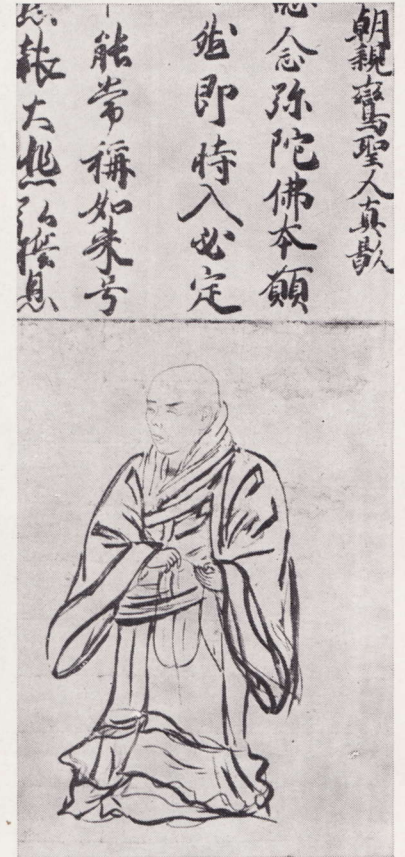 朝親鸞聖人真影
念弥陀佛本願
然即時入必定
能常稱如来号
報大悲弘誓恩